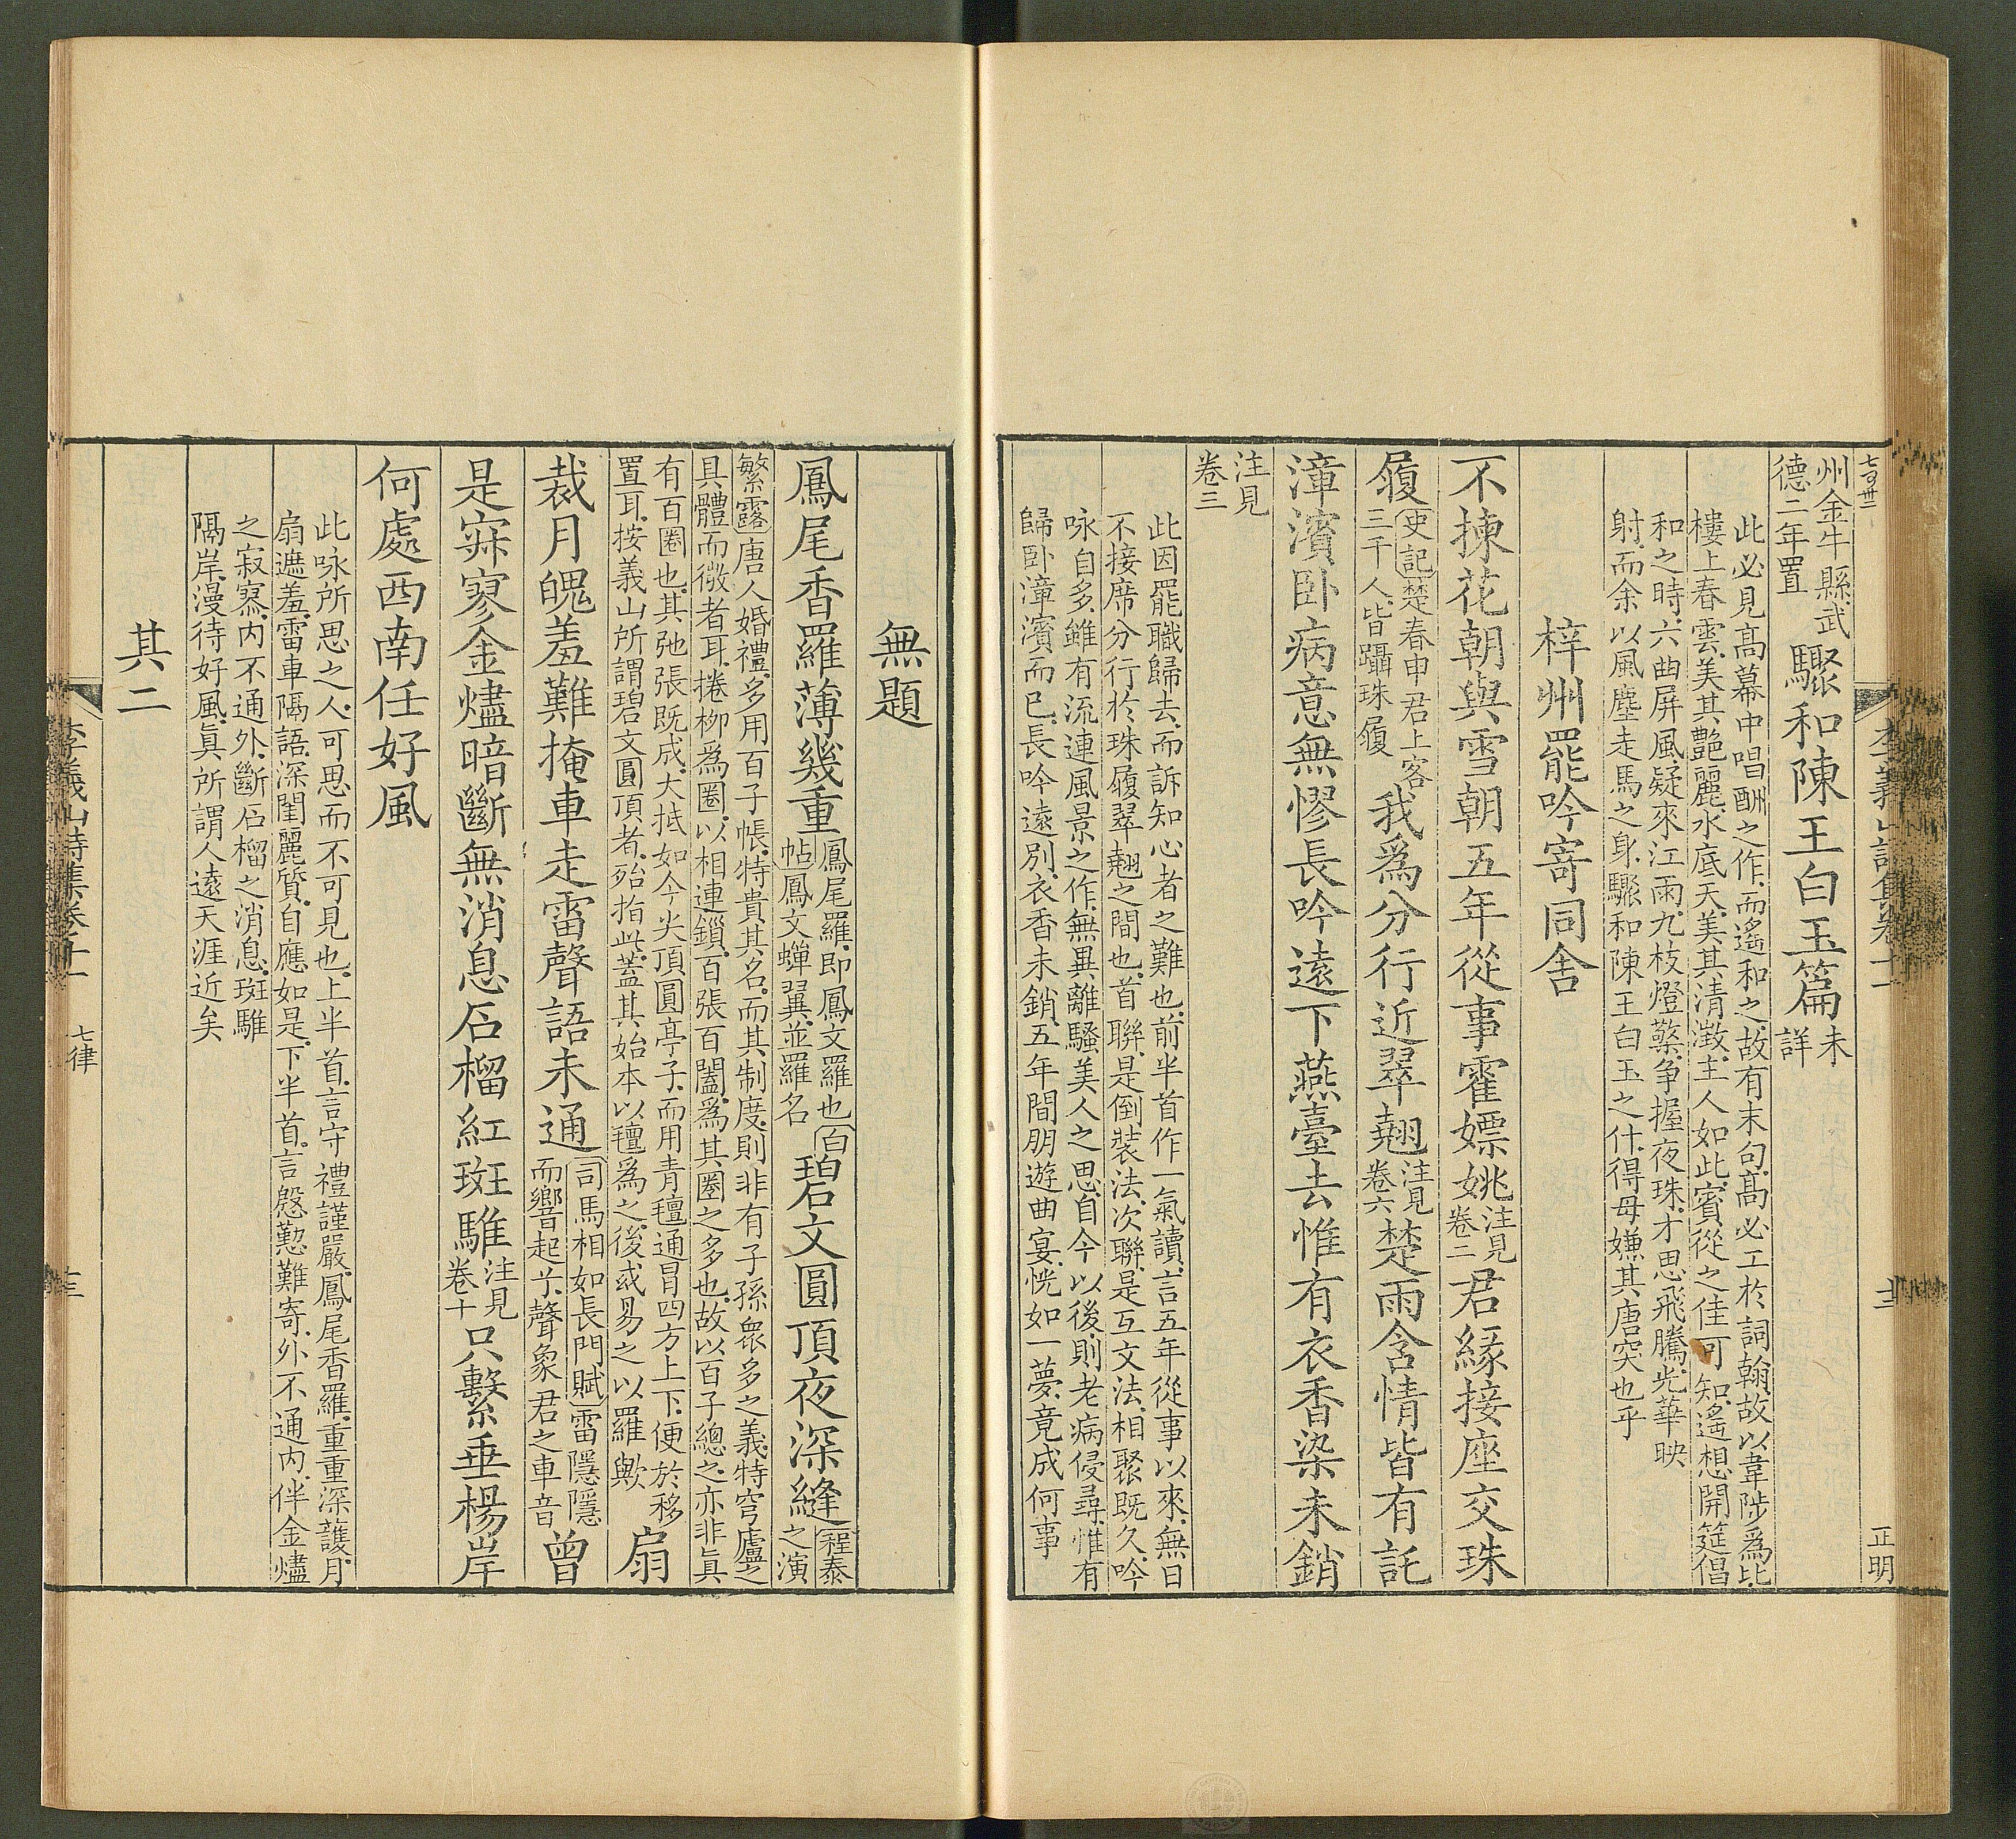 李義山詩集卷十一
正明
州金牛縣武
德二年置
驟和陳王白玉篇
未
詳
此必見高幕中唱酬之作而遙和之故有末句高必工於詞翰故以韋陟爲比
樓上春雲美其艷麗水底天美其清澂主人如此賓從之佳可知遙想開筵倡
和之時六曲屏風疑來江雨九枝燈檠争握夜珠才思飛騰光華映
射而余以風塵走馬之身驟和陳王白玉之什得毋嫌其唐突也乎
梓州罷吟寄同舍
不揀花朝與雪朝五年從事霍嫖姚
注見
卷二
君緣接座交珠
履
史記楚春申君上客
三千人皆躡珠履
我爲分行近翠翹
注見
卷六
楚雨含情皆有託
漳濱卧病意無憀長吟遠下燕臺去惟有衣香染未銷
注見
卷三
此因罷職歸去而訴知心者之難也前半首作一氣讀言五年從事以來無日
不接席分行於珠履翠翹之間也首聯是倒裝法次聯是互文法相聚既久吟
咏自多雖有流連風景之作無異離騷美人之思自今以後則老病侵尋惟有
歸卧漳濱而已長吟遠別衣香未銷五年間朋遊曲宴恍如一夢竟成何事
無題
鳳尾香羅薄幾重
鳳尾羅即鳳文羅也白
帖鳳文蟬翼並羅名
碧文圓頂夜深縫
程泰
之演
繁露唐人婚禮多用百子帳特貴其名而其制度則非有子孫衆多之義特穹廬之
具體而微者耳捲柳爲圈以相連鎖百張百闔爲其圈之多也故以百子總之亦非真
有百圈也其弛張既成大抵如今尖頂圓亭子而用青氊通冒四方上下便於移
置耳按義山所謂碧文圓頂者殆指此蓋其始本以氊爲之後或易之以羅歟
扇
裁月魄羞難掩車走雷聲語未通
司馬相如長門賦雷隱隱
而響起兮聲象君之車音
曾
是寂寥金燼暗斷無消息石榴紅斑騅
注見
卷十
只繫垂楊岸
何處西南任好風
此咏所思之人可思而不可見也上半首言守禮謹嚴鳳尾香羅重重深護月
扇遮羞雷車隔語深閨麗質自應如是下半首言慇懃難寄外不通内伴金燼
之寂寞内不通外斷石榴之消息斑騅
隔岸漫待好風真所謂人遠天涯近矣
其二
李義山詩集卷十一
七律
十三